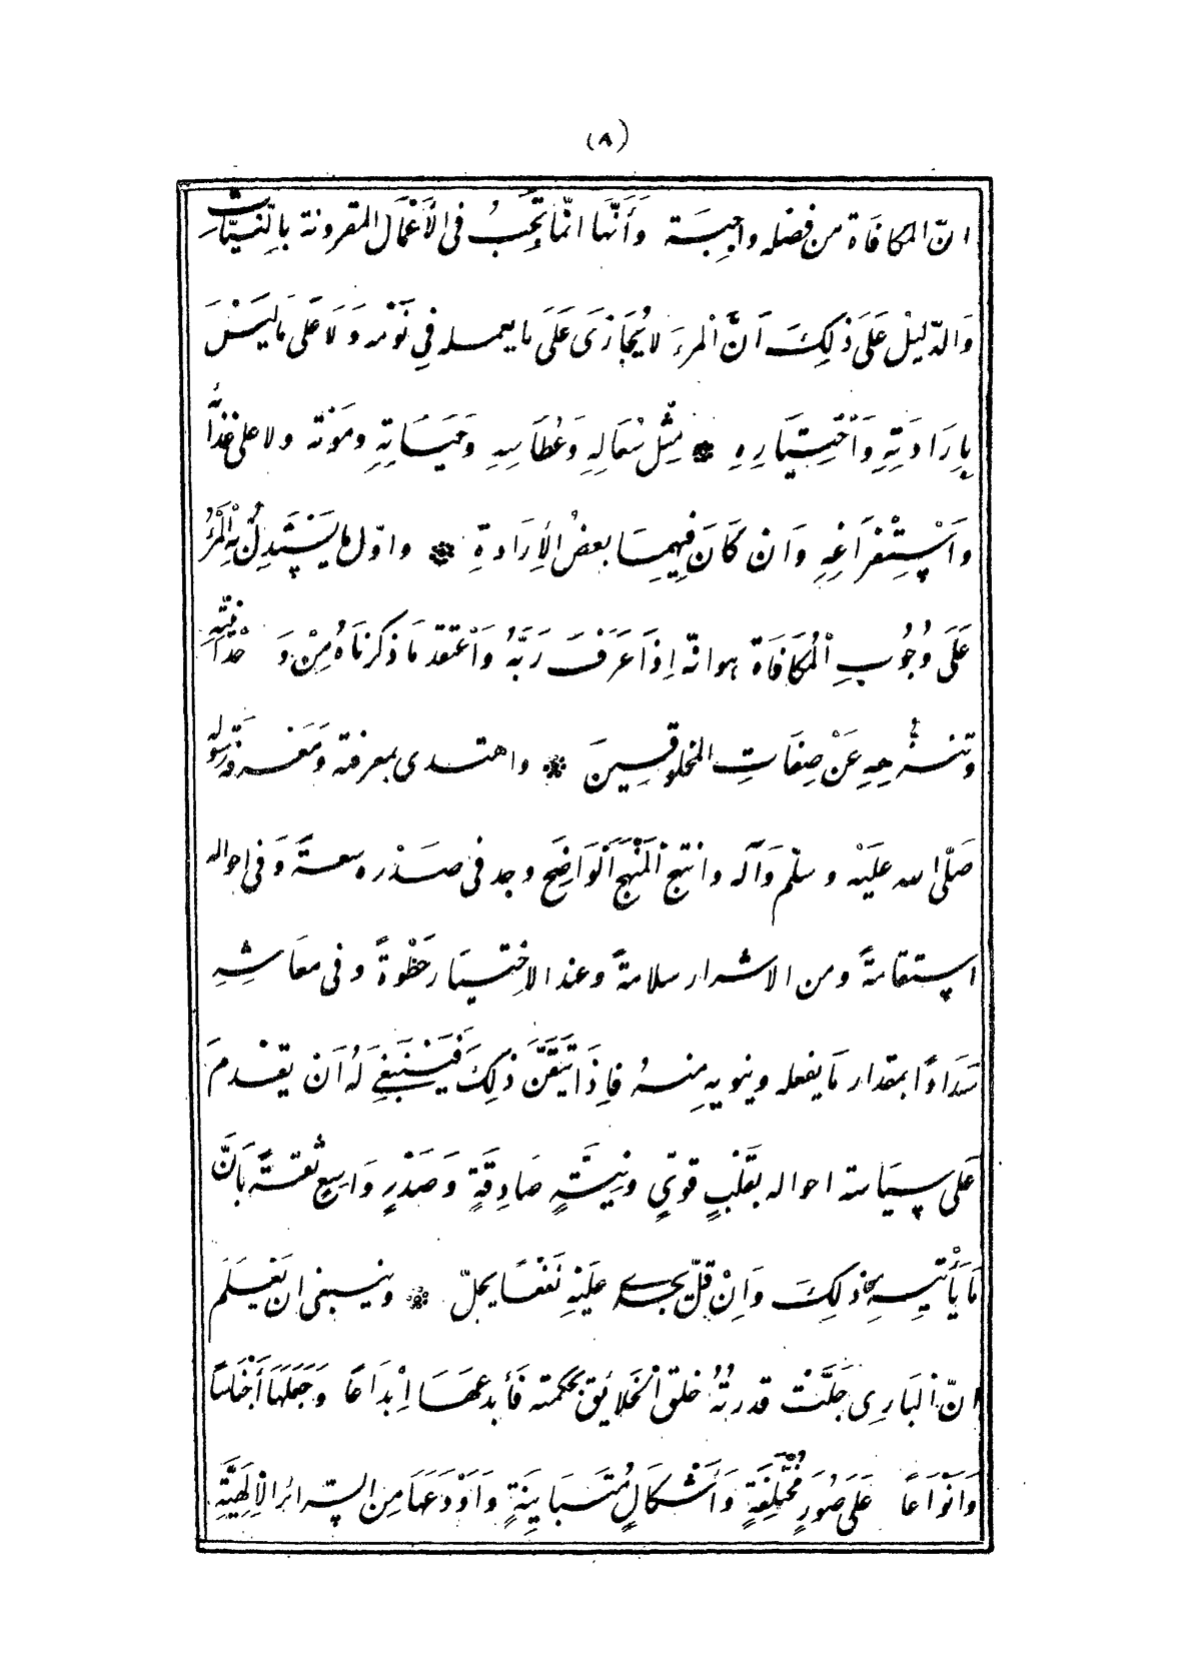 (٨)
انّ المكافَاة من فضله واجِبَة وَأَنَّهَا انّمَا تَجِبُ فى الْأَعْمَال المقرونة بالنّيّات
وَالدّلِيلُ عَلَى ذَلِكَ اَنَّ الْمرءَ لَا يُجَازَى عَلَى ما يعمله فِي نَوْمه وَ لَا عَلى ما لَيْسَ
بِارَادَتِهِ وَاخْتِيَارِهِ ۞ مِثْل سُعَالِهِ وَعُطَاسِهِ وَحَيَاتِهِ ومَوْته ولا على غذائه
وَاسْتِفْرَاغِهِ وَان كَانَ فِيهِمَا بعضُ الْأِرَادةِ ۞ واوّل ما يَسْتَدِلّ بِهِ الْمَرْءُ
عَلَى وُجُوبِ الْمُكَافَاة هو انّه اِذَا عَرَفَ رَبَّهُ وَاعْتقد مَا ذكرنَاهُ مِنْ وَحْدَانِيَّتِه
وتنزُّهِهِ عَنْ صِفَاتِ المخلوقِينَ ۞ واهتدى بمعرفته وَمَعْرفة رَسُوله
صَلّى الله عَلَيْه وسلّم وَآله وانتهج الْمَنْهَج الْوَاضِحَ وجد فى صَدْره سعةً وَفى احواله
استقامةً ومن الاشرار سلامةً وعند الاخْتِيَار حَظْوةً وفى معَاشِهِ
سَدَادًا بمقدار مَا يفعله وينويه مِنهُ فَاِذَا تَيَقَّنَ ذلِكَ فَيَنْبَغِي لَهُ اَن يقْدمَ
عَلى سيَاسة احواله بقَلْبٍ قوىٍّ ونِيَّةٍ صَادِقَةٍ وَصَدْرٍ وَاسِعٍ ثقةً بِاَنَّ
مَا يَأْتيهِ من ذلِكَ وَاِنْ قلّ يجدى عَلَيْهِ نَفْعًا يجلّ ۞ وينبغى ان يَعْلَمَ
انّ الْبَارِى جَلَّتْ قدرتُهُ خلق الْخَلَائِق بحكمته فَأَبدعهَا اِبْدَاعًا وَجَعَلَهَا أَجْنَاسًا
وَانْوَاعًا عَلَى صُوَرٍ مُخْتَلِفَةٍ وَأَشْكَالٍ مُتَبَايِنَةٍ وَاَوْدَعَهَا مِن السّرائر الْاِلَهِيَّةِ